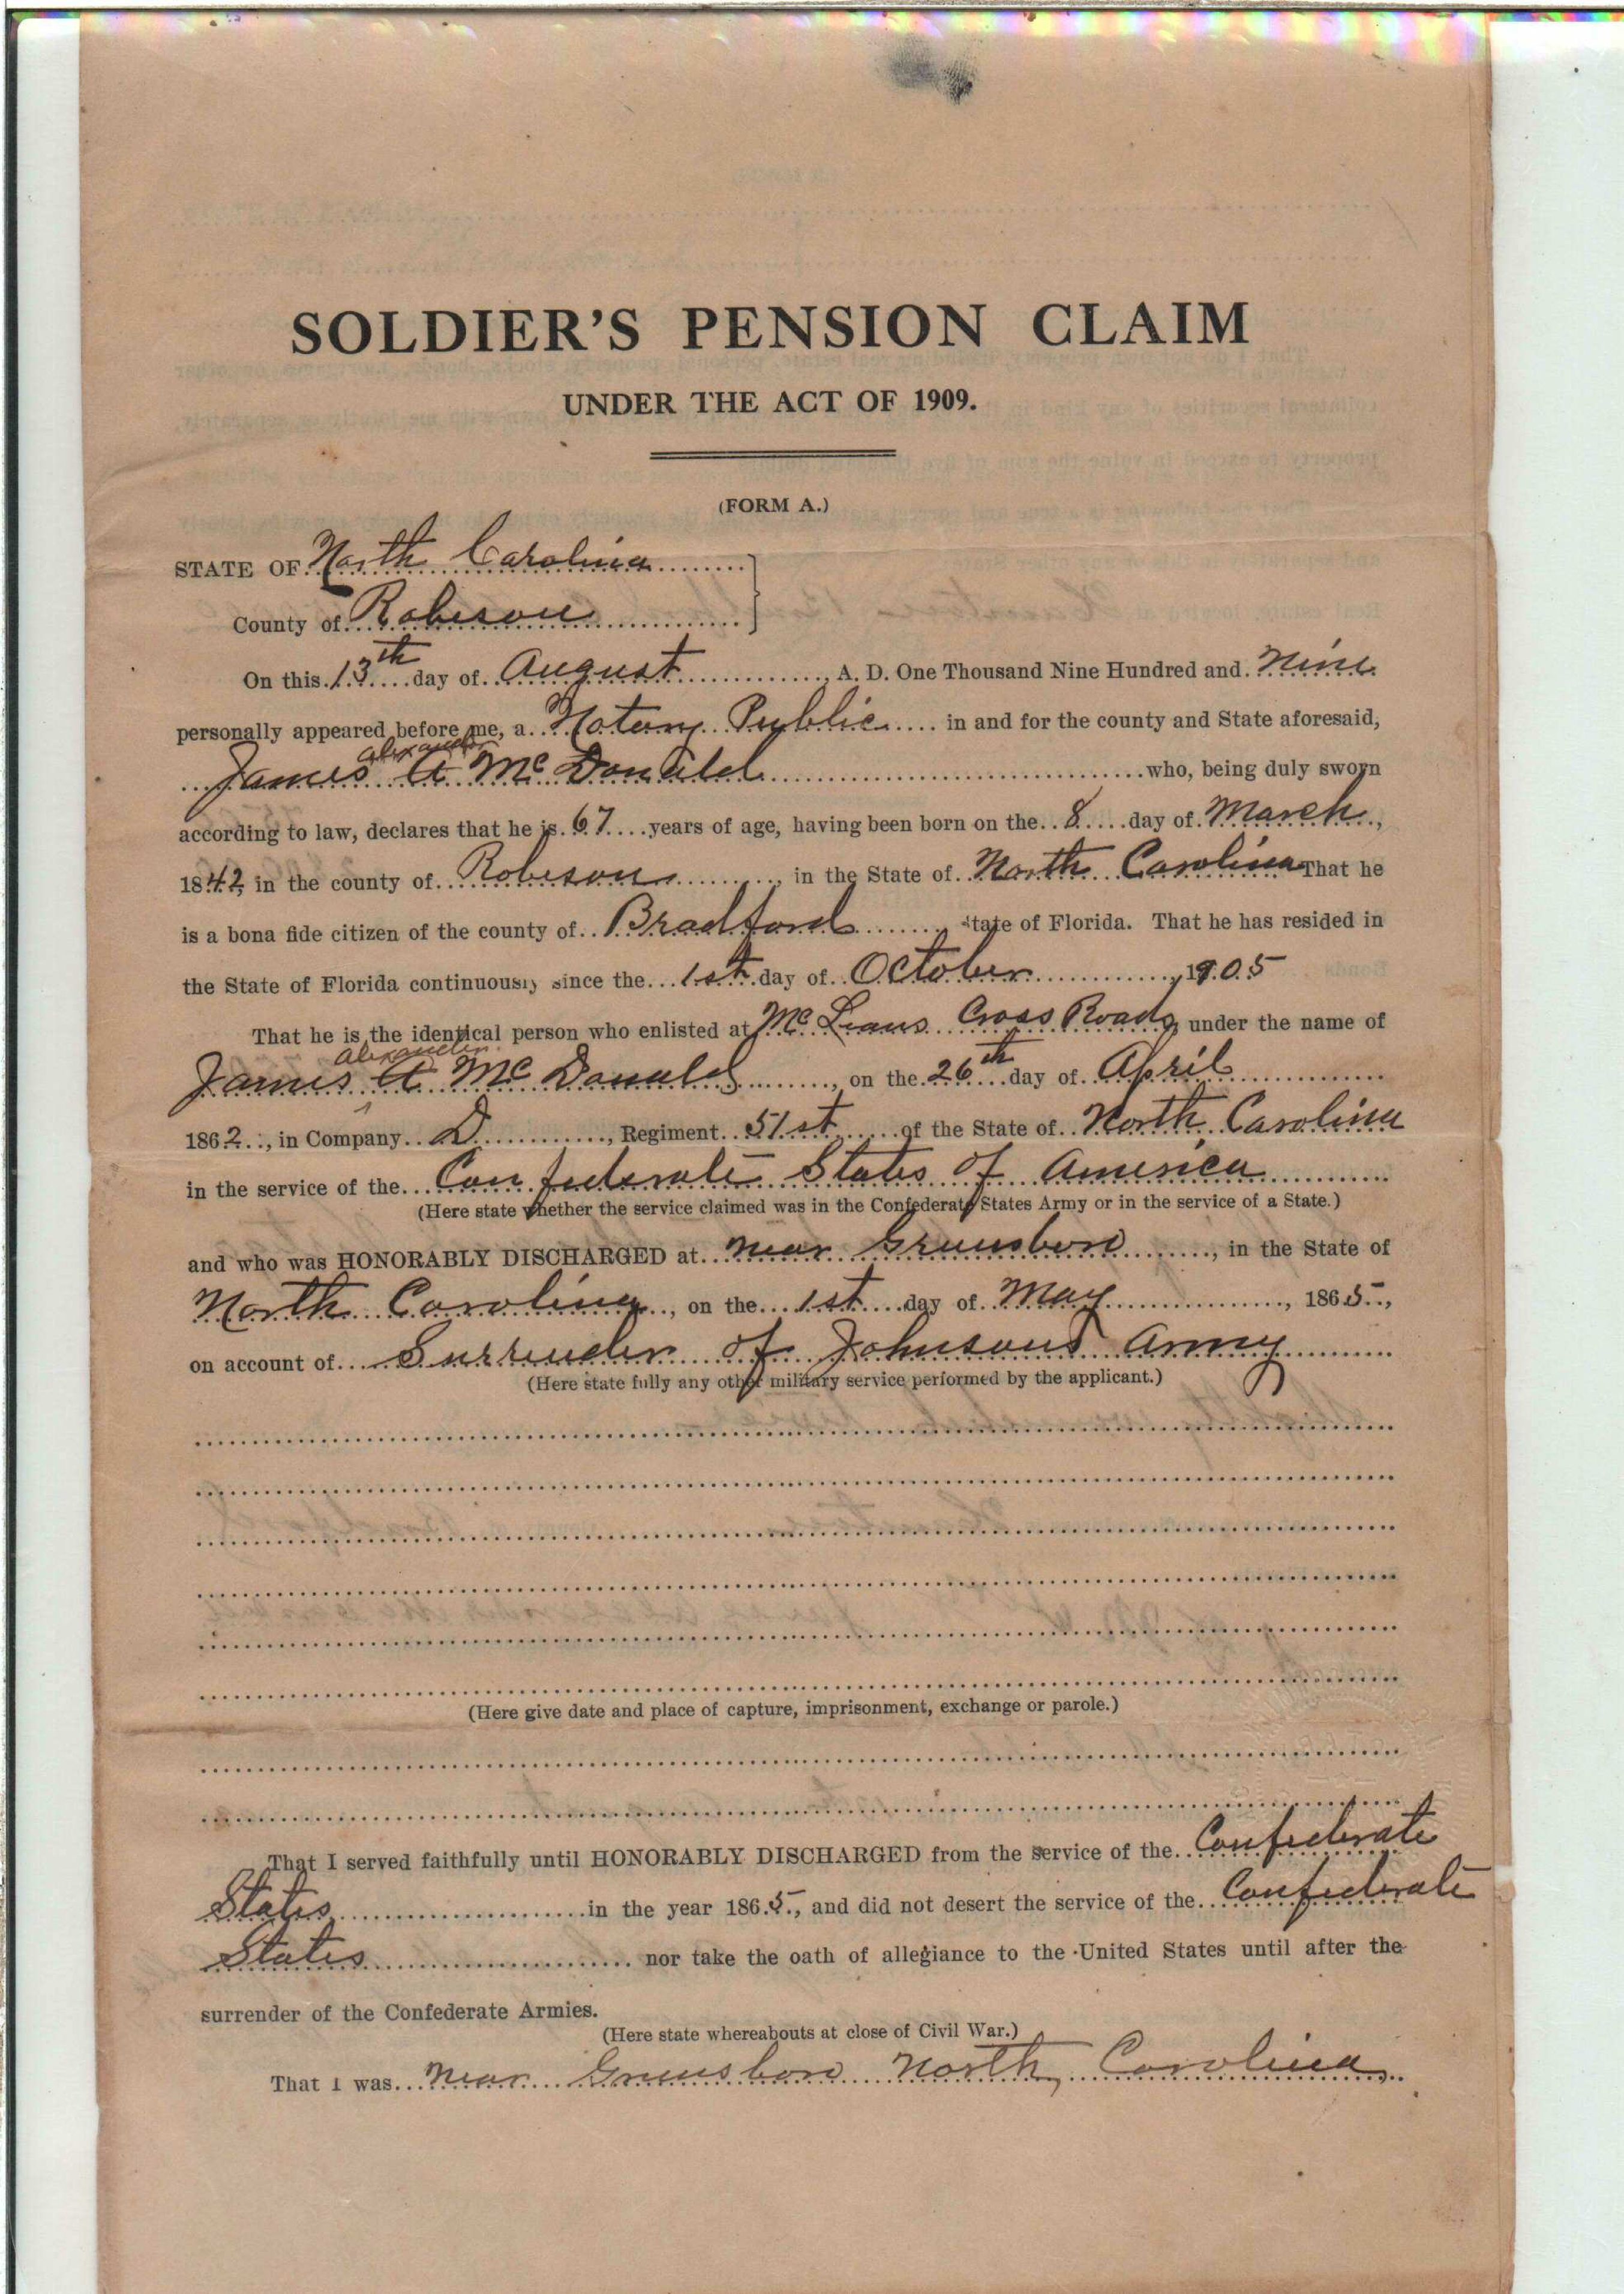 SOLDIER'S PENSION CLAIM
UNDER THE ACT OF 1909.
(FORM A.)
STATE OF North Carolina
County of Robeson
On this 13th day of August, A. D. One Thousand Nine Hundred and Nine
personally appeared before me, a Notary Public in and for the county and State aforesaid,
Alexander
James A McDonald who, being duly sworn
according to law, declares that he is 67 years of age, having been born on the 8 day of March,
1842 in the county of Robeson, in the State of North Carolina That he
is a bona fide citizen of the county of Bradford, State of Florida. That he has resided in
the State of Florida continuously since the 1st day of October, 1905
That he is the identical person who enlisted at McLeans Cross Roads, under the name of
Alexander
James A McDonald, on the 26th day of April
1862, in Company D, Regiment 51st of the State of North Carolina
in the service of the Confederate States of America
(Here state whether the service claimed was in the Confederate States Army or in the service of a State.)
and who was HONORABLY DISCHARGED at near Greensboro, in the State of
North Carolina, on the 1st day of May, 1865,
on account of Surrender of Johnsons Army
(Here state fully any other military service performed by the applicant.)
(Here give date and place of capture, imprisonment, exchange or parole.)
That I served faithfully until HONORABLY DISCHARGED from the service of the Confederate
States in the year 1865, and did not desert the service of the Confederate
States nor take the oath of allegiance to the United States until after the
surrender of the Confederate Armies.
(Here state whereabouts at close of Civil War.)
That I was near Greensboro North Carolina